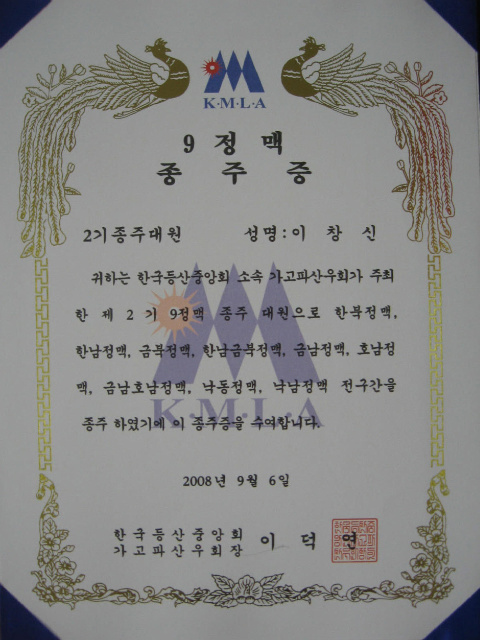 K·M·L·A
9 정맥
종 주 증
2기종주대원 성명 : 이 창 신
귀하는 한국등산중앙회 소속 가고파산우회가 주최
한 제 2 기 9정맥 종주 대원으로 한북정맥,
한남정맥, 금북정맥, 한남금북정맥, 금남정맥, 호남정
맥, 금남호남정맥, 낙동정맥, 낙남정맥 전구간을
종주 하였기에 이 종주증을 수여합니다.
K·M·L·A
2008년 9월 6일
한국등산중앙회
가고파산우회장 이 덕 연